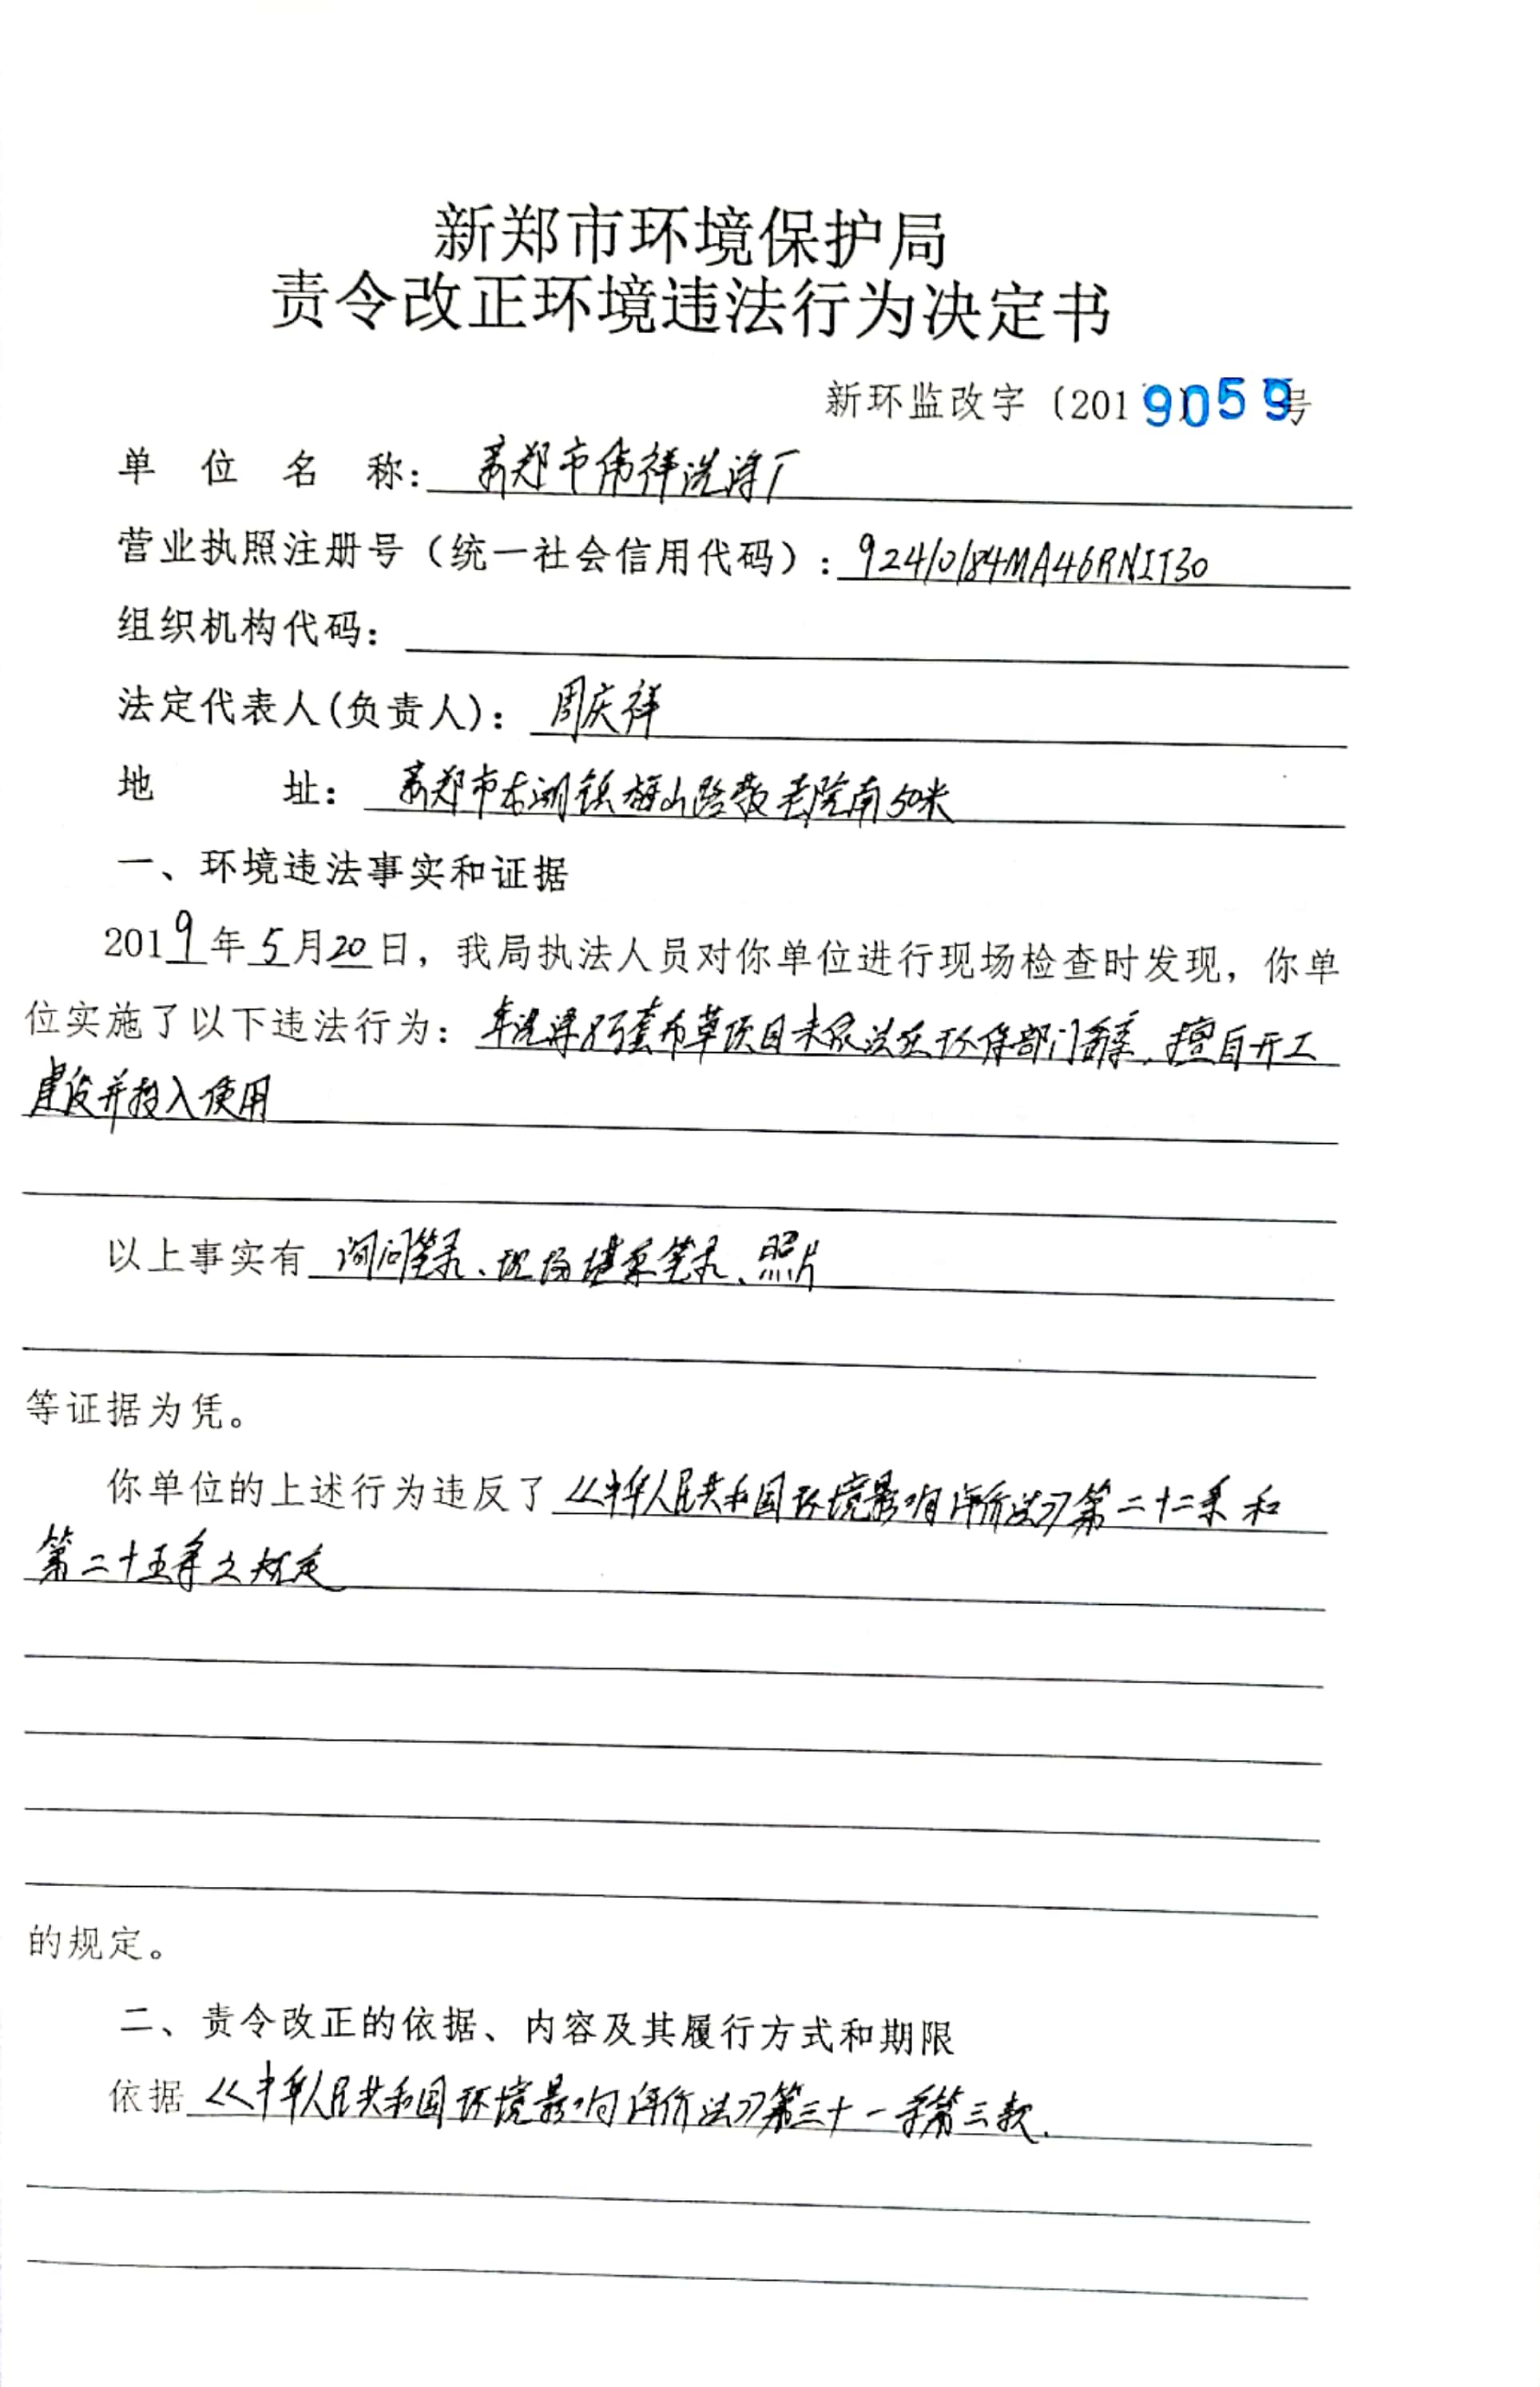 新郑市环境保护局
责令改正环境违法行为决定书
新环监改字〔2019〕059号
单位名称：新郑市伟祥洗涤厂
营业执照注册号（统一社会信用代码）：92410184MA46RN1T30
组织机构代码：
法定代表人(负责人)：周庆祥
地址：新郑市龙湖镇梅山路敬老院南50米
一、环境违法事实和证据
2019年5月20日，我局执法人员对你单位进行现场检查时发现，你单
位实施了以下违法行为：年洗涤8万套布草项目未依法在环保部门备案，擅自开工
建设并投入使用
以上事实有 询问笔录、现场 笔录、照片
等证据为凭。
你单位的上述行为违反了《中华人民共和国环境影响评价法》第二十二条和
第二十五条之规定
的规定。
二、责令改正的依据、内容及其履行方式和期限
依据《中华人民共和国环境影响评价法》第三十一条第三款.